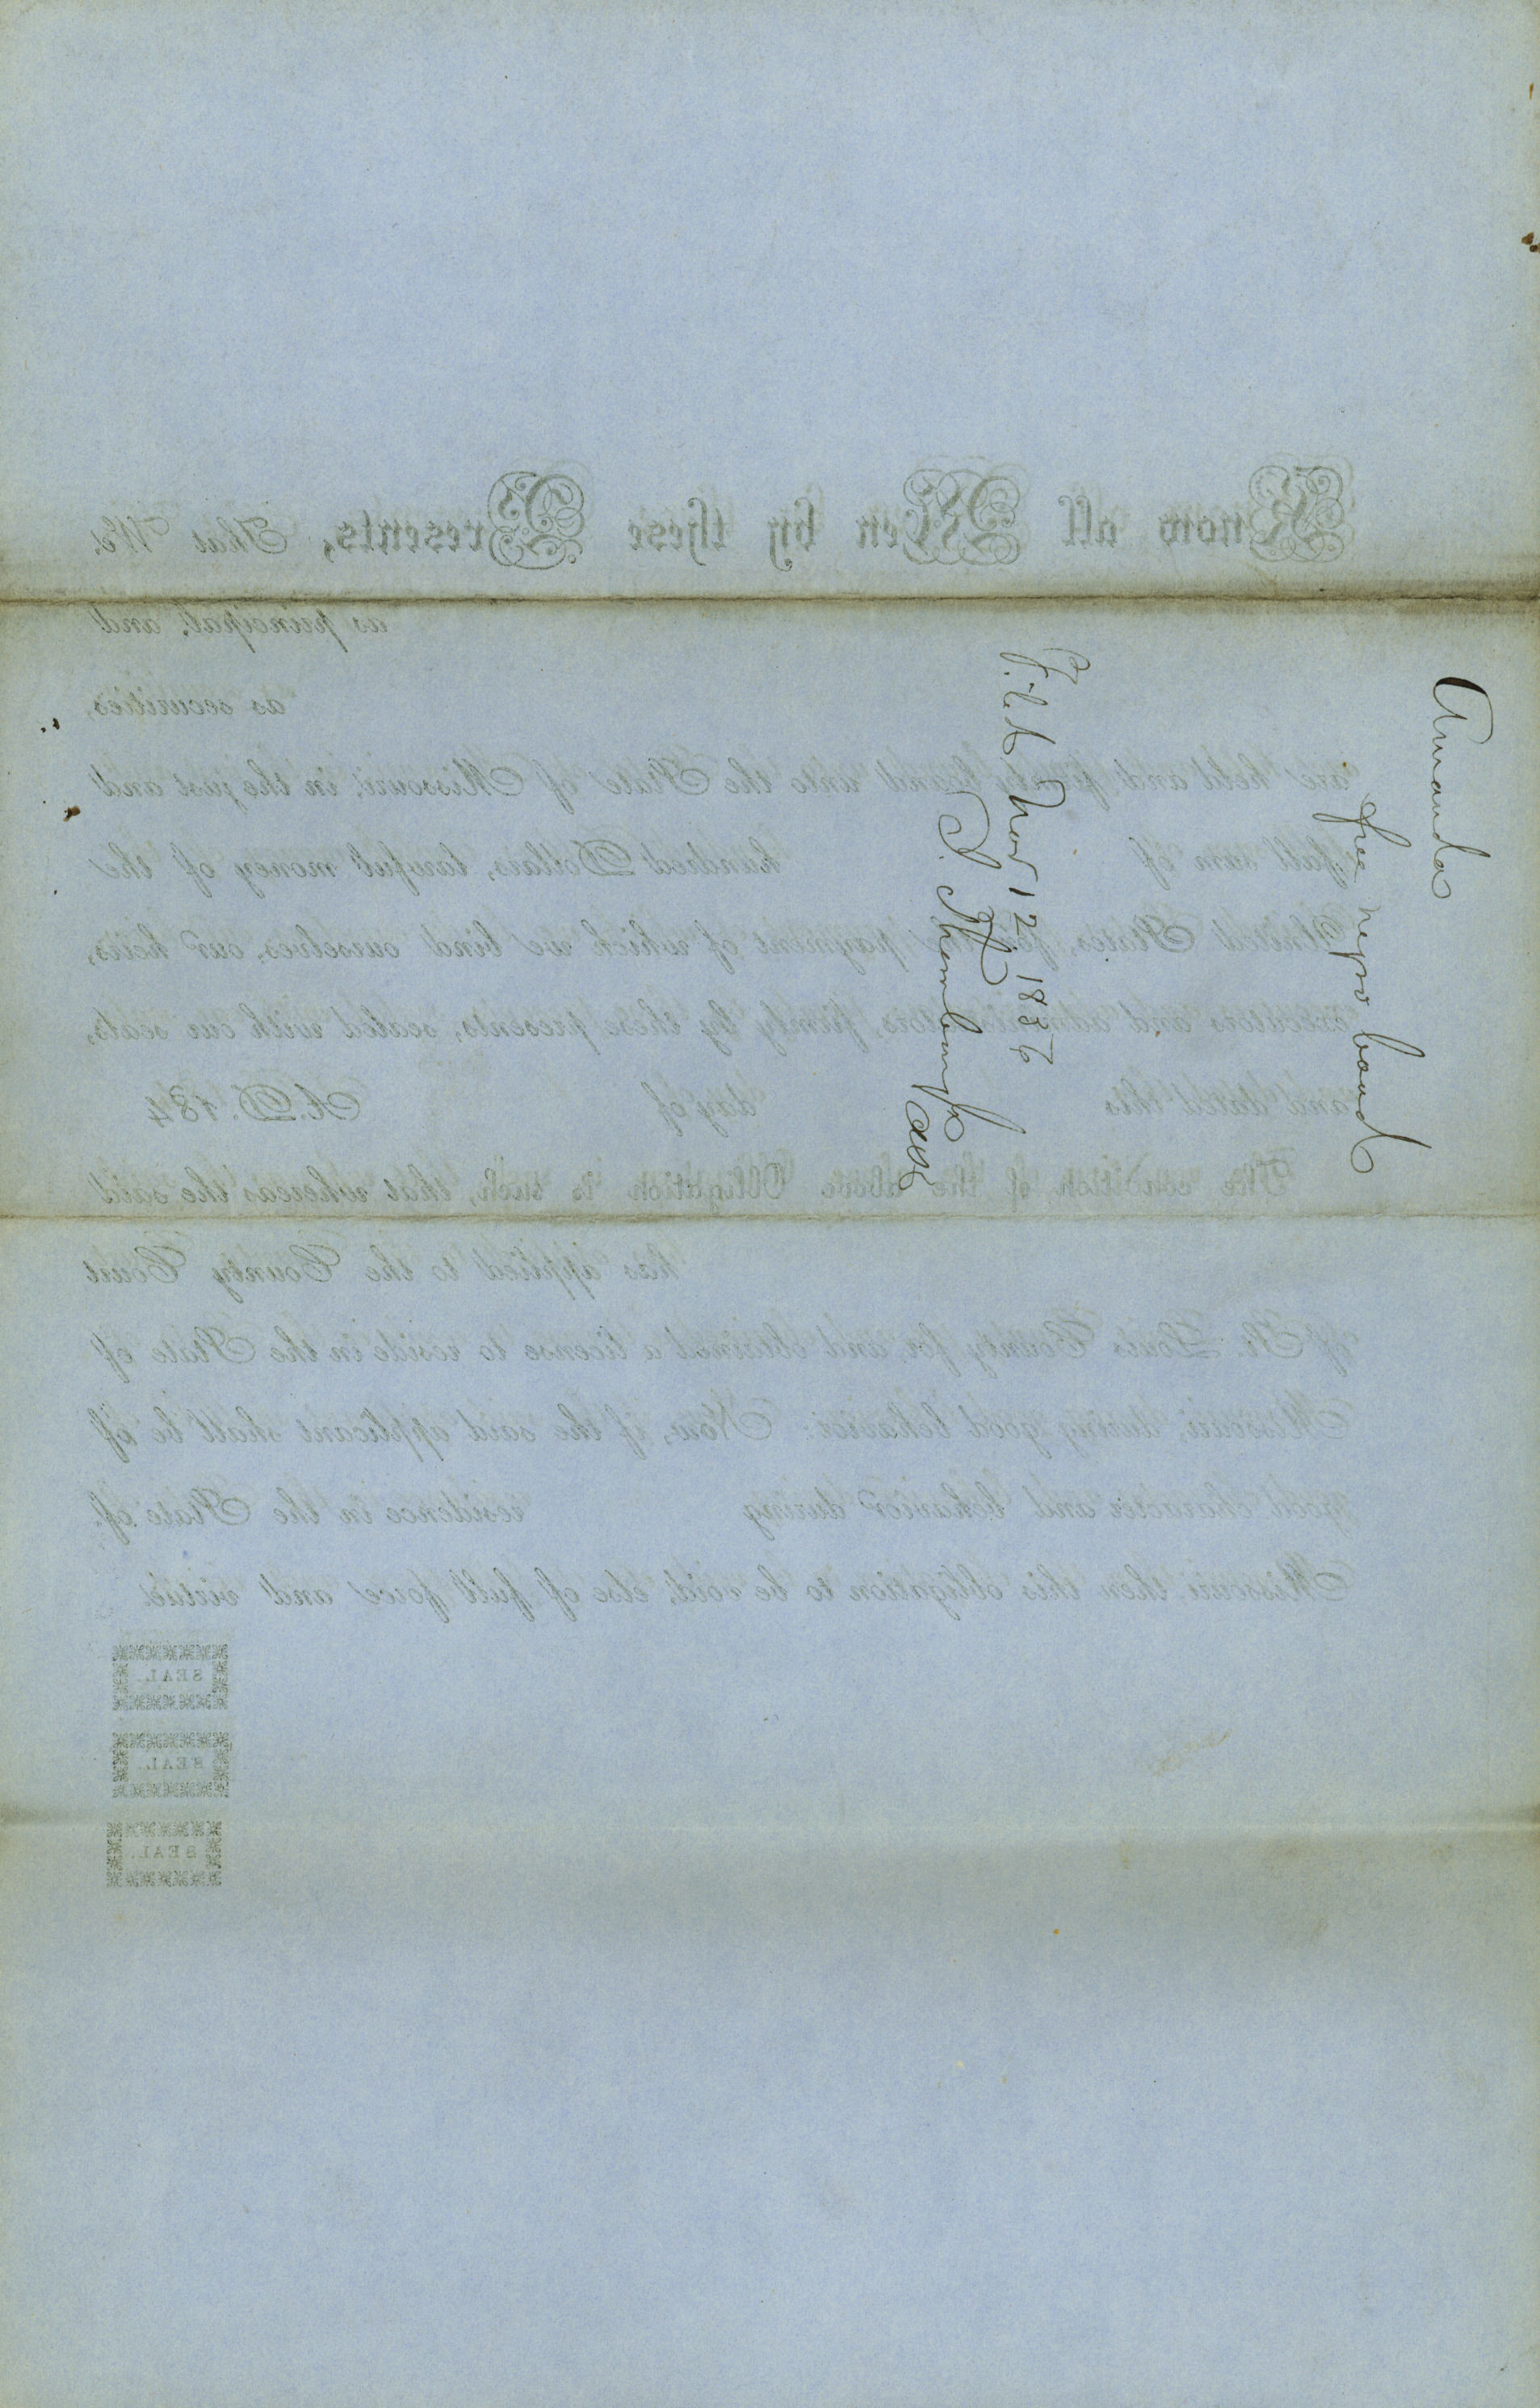 Amanda
free negro bond
Filed Nov 12. 1846
Know all Men by these Presents, That We,
as principal, and
as securities,
are held and firmly bound unto the State of Missouri, in the just and
full sum of hundred Dollars, lawful money of the
United States, for the payment of which we bind ourselves, our heirs,
executors and administrators, firmly by these presents, sealed with our seals,
and dated this day of A. D. 184
The condition of the above Obligation is such, that whereas the said
has applied to the County Court
of St. Louis County for, and obtained a license to reside in the State of
Missouri, during good behavior: Now, if the said applicant shall be of
good character and behavior during residence in the State of
Missouri, then this obligation to be void, else of full force and virtue.
SEAL.
SEAL.
SEAL.